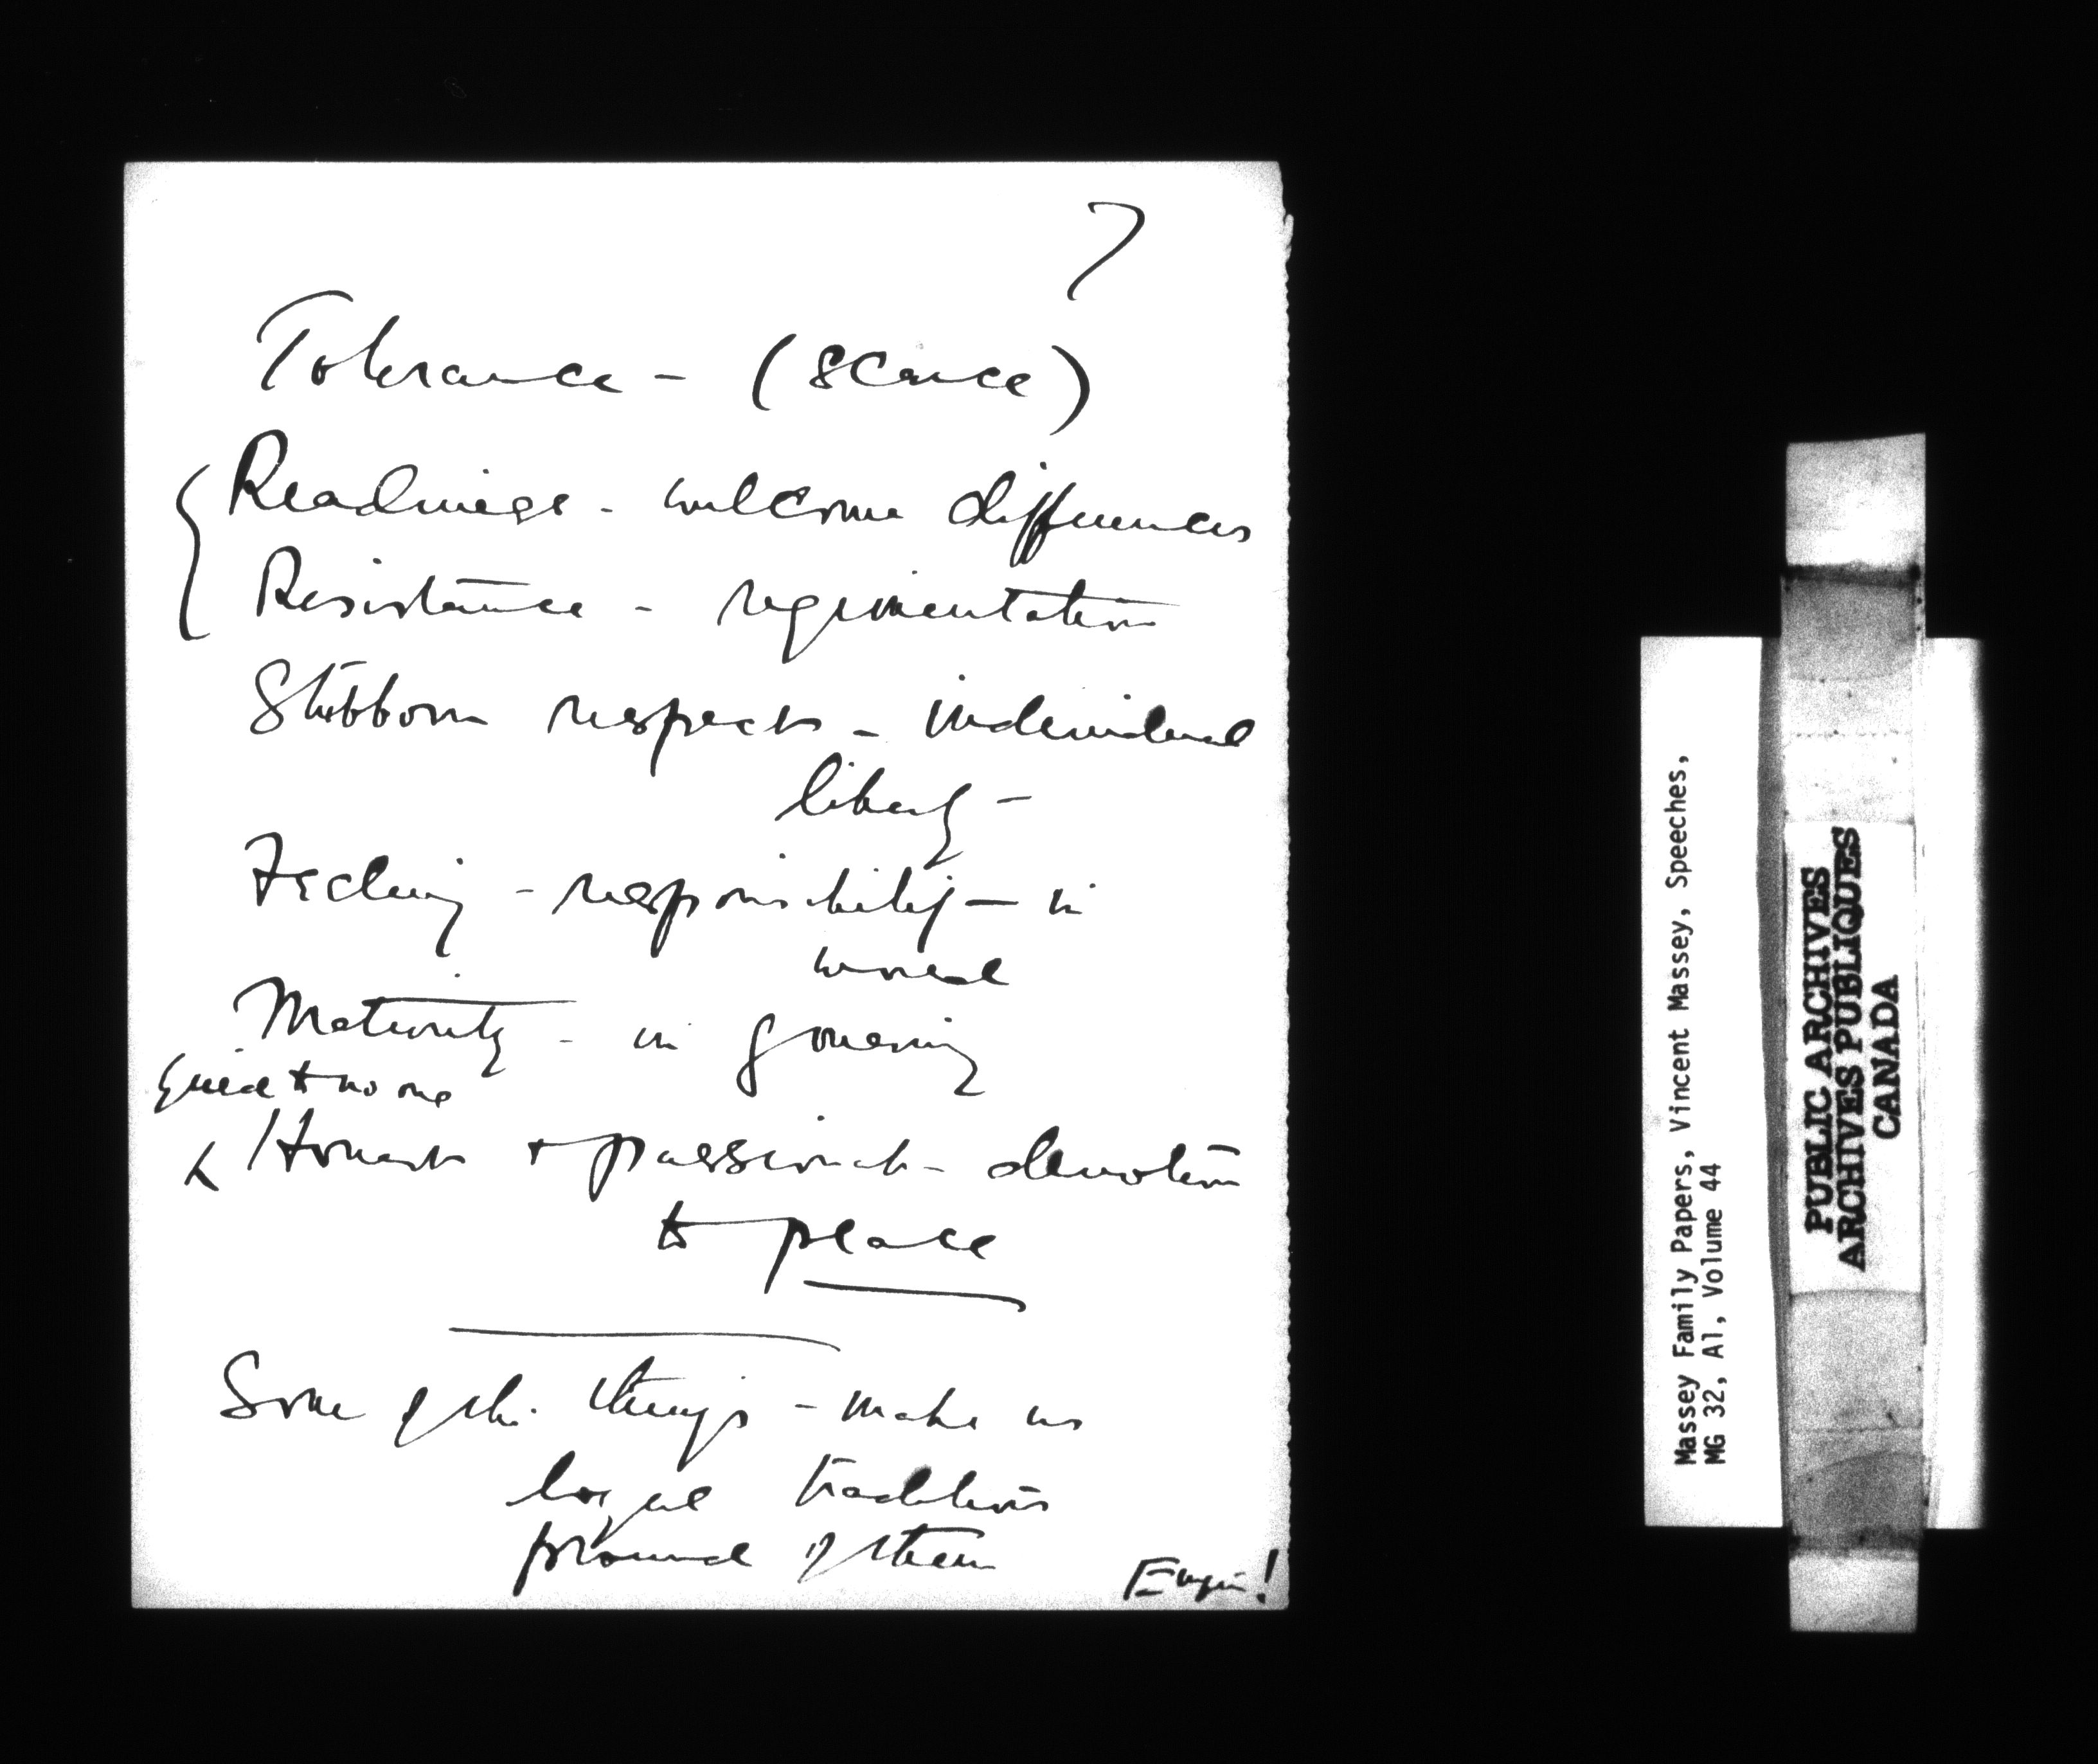 7
Tolerance - (scarce)
Readiness - welcome differences
Resistance - regimentation
Stubborn respect - individual
liberty -
Feeling - responsibility - in
world
Maturity - in governing
to no one
& Honest + passionate devotion
to peace
Some of the things - make us
loyal traditions
proud of them
Massey Family Papers, Vincent Massey, Speeches,
MG 32, A1, Volume 44
PUBLIC ARCHIVES
ARCHIVES PUBLIQUES
CANADA